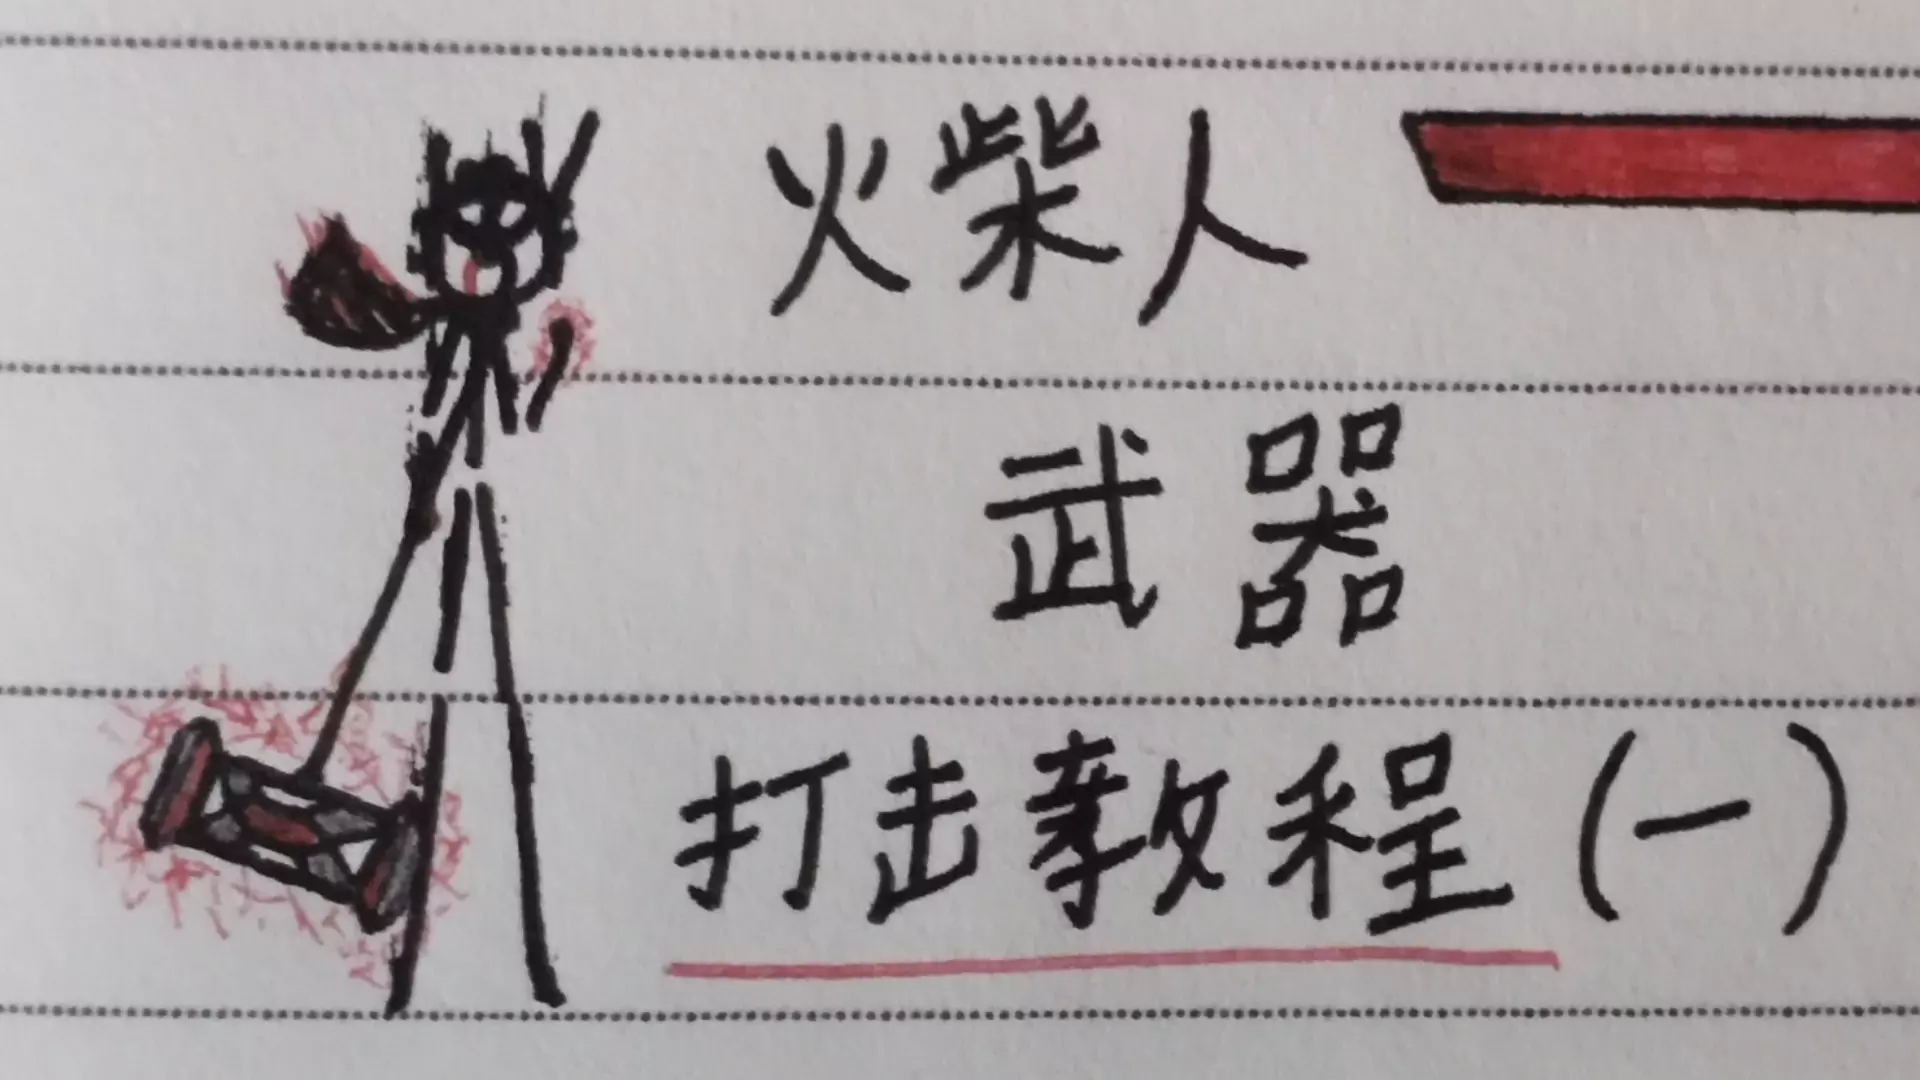 火柴人
武器
打击教程(一)